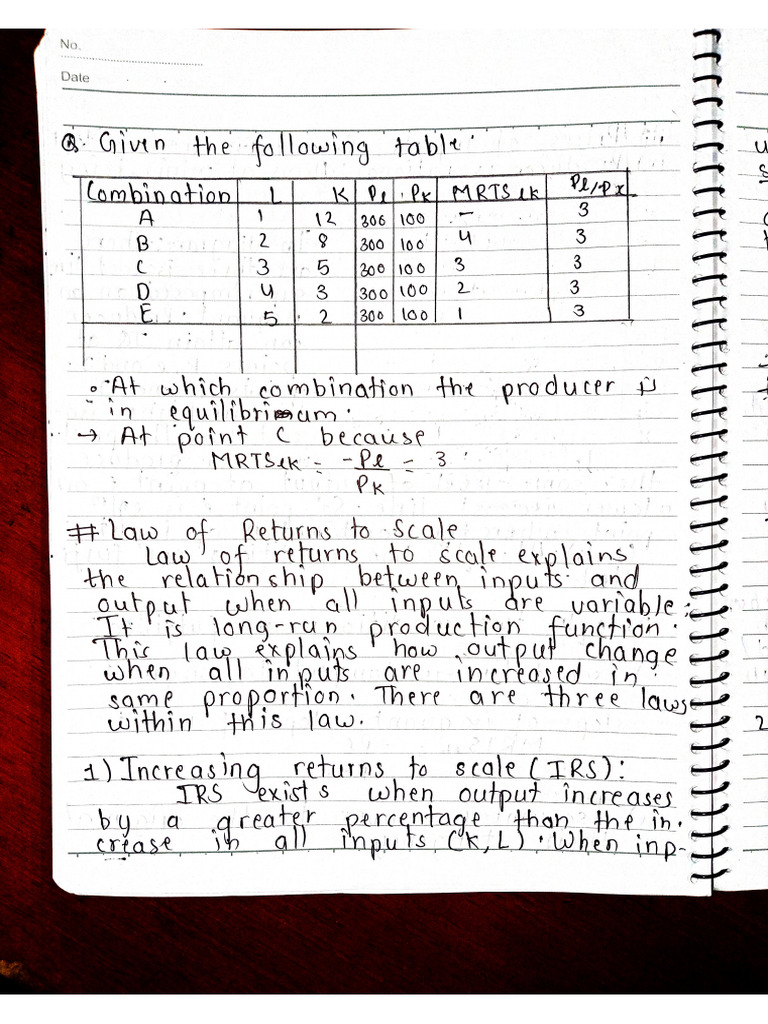 No.
Date
Q. Given the following table.
Combination L K Pl PK MRTS lk Pl/Px
A 1 12 306 100 - 3
B 2 8 300 100 4 3
C 3 5 300 100 3 3
D 4 3 300 100 2 3
E 5 2 300 100 1 3
At which combination the producer is
in equilibrium.
→ At point C because
MRTSlk = -Pl = 3
PK
# Law of Returns to Scale
Law of returns to scale explains
the relationship between inputs and
output when all inputs are variable.
It is long-run production function.
This law explains how output change
when all inputs are increased in
same proportion. There are three laws
within this law.
1) Increasing returns to scale (IRS):
IRS exists when output increases
by a greater percentage than the in-
crease in all inputs (K, L). When inp-
2